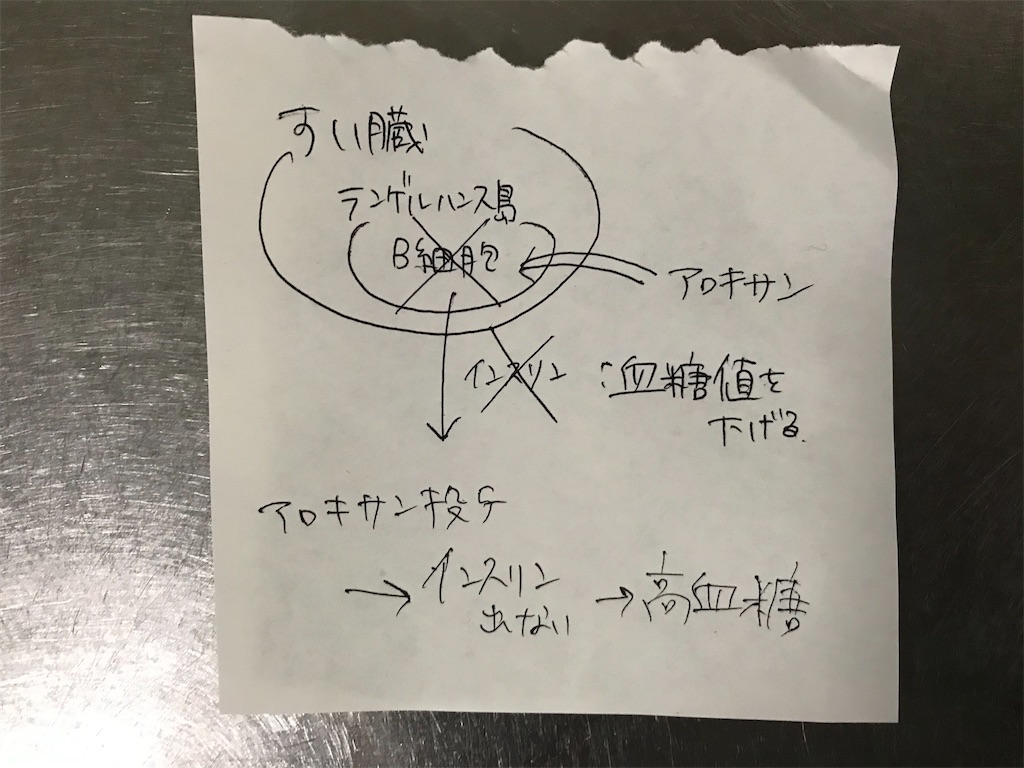 すい臓
ランゲルハンス島
B細胞
アロキサン
インスリン :血糖値を
下げる.
アロキサン投与
→インスリン
出ない →高血糖